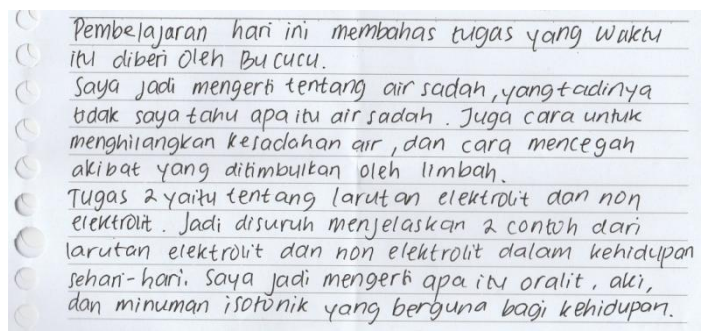 Pembelajaran hari ini membahas tugas yang waktu
itu diberi oleh Bu cucu.
Saya jadi mengerti tentang air sadah, yang tadinya
tidak saya tahu apa itu air sadah. Juga cara untuk
menghilangkan kesadahan air, dan cara mencegah
akibat yang ditimbulkan oleh limbah.
Tugas 2 yaitu tentang larutan elektrolit dan non
elektrolit. Jadi disuruh menjelaskan 2 contoh dari
larutan elektrolit dan non elektrolit dalam kehidupan
sehari-hari. Saya jadi mengerti apa itu oralit, aki,
dan minuman isotonik yang berguna bagi kehidupan.